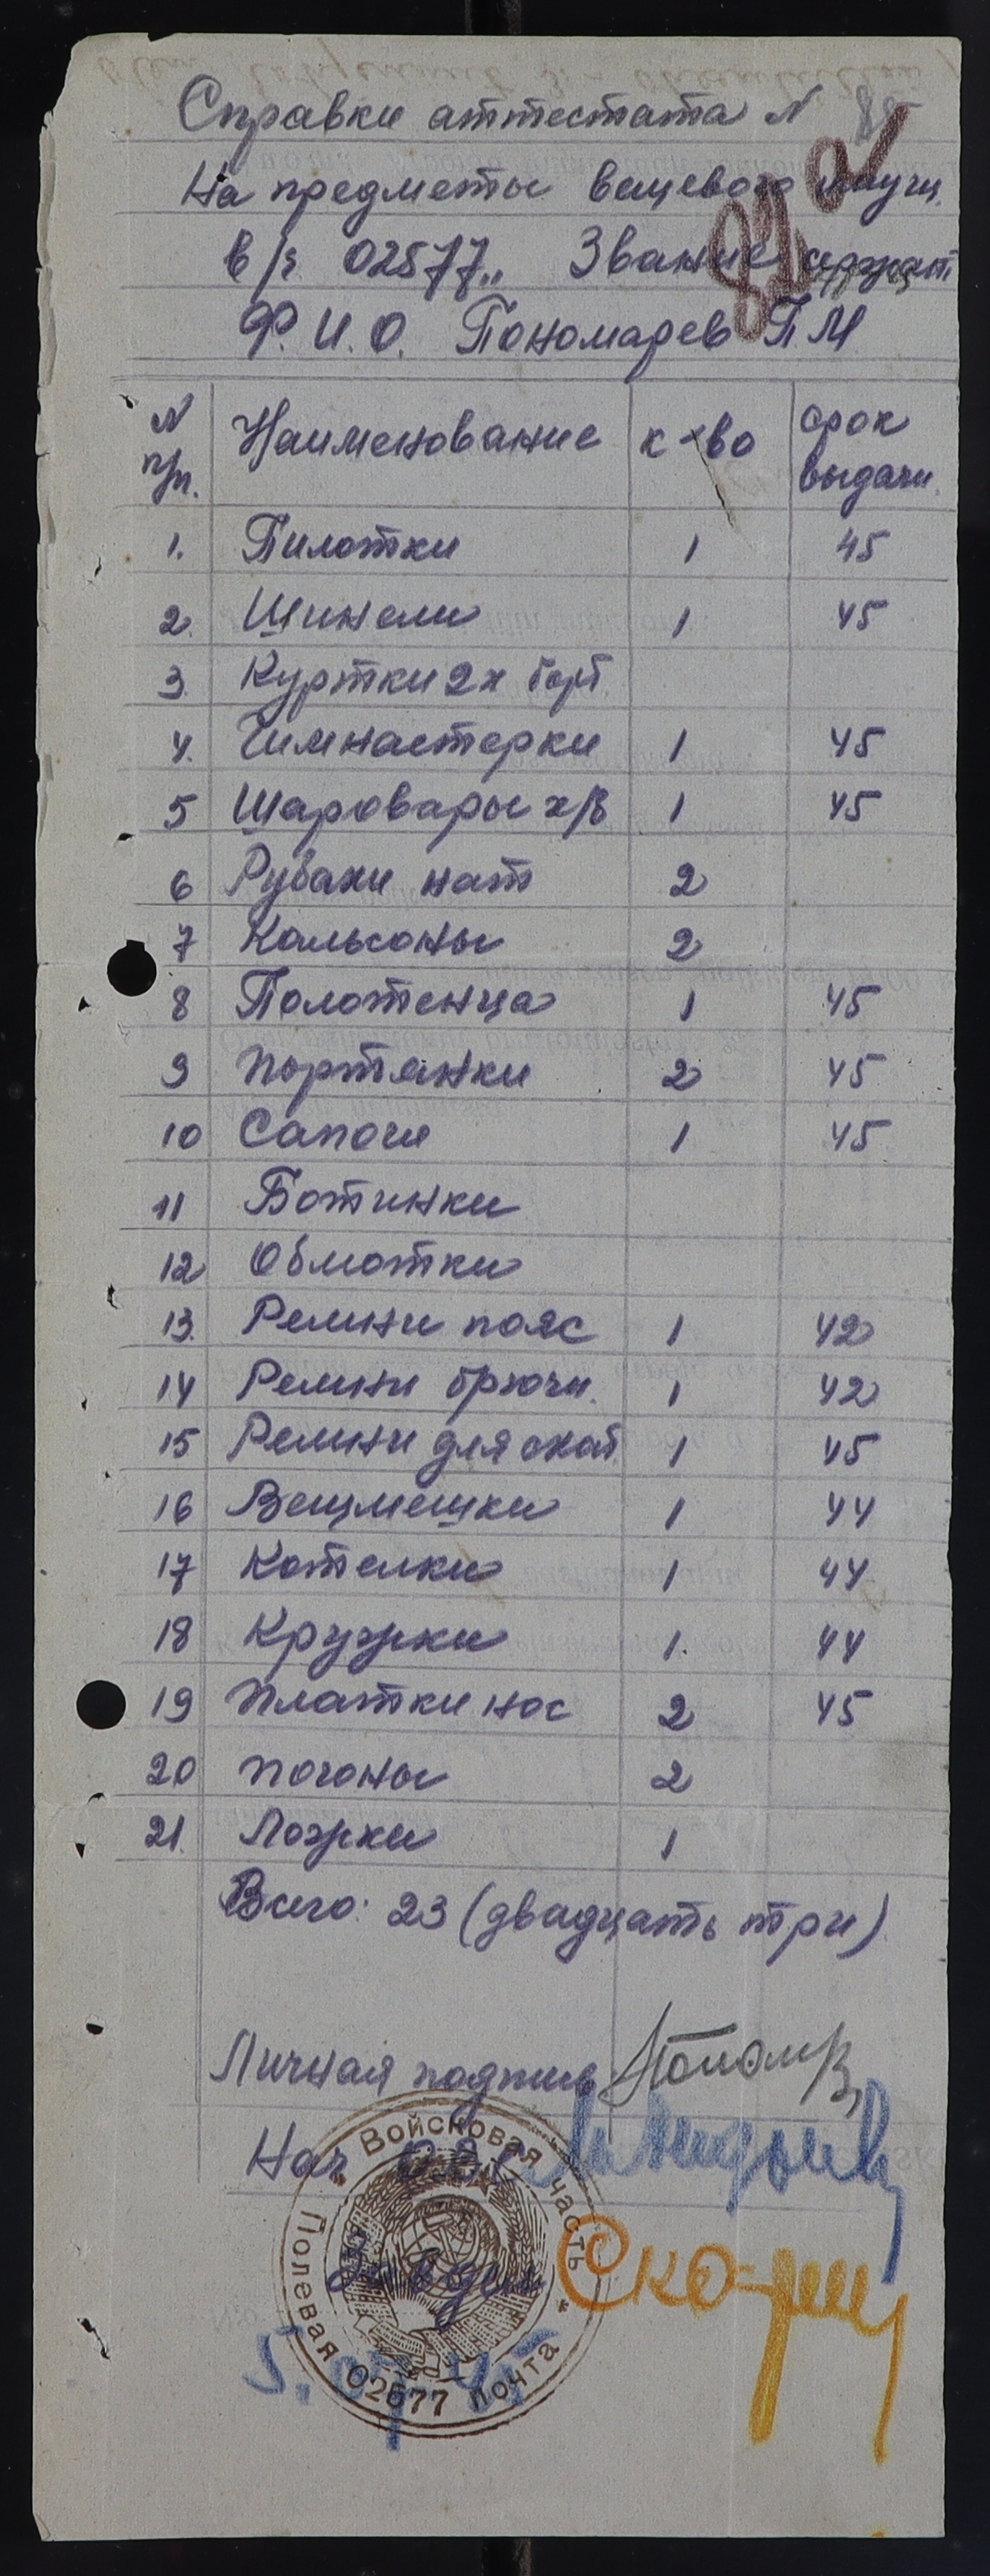 Справки аттестата №
На предметы вещевого имущ.
в/ч 02577,, Звание сержант
Ф.И.О. Пономарев П.М.
№ п/п. Наименование к-во срок выдачи.
1. Пилотки 1 45
2. Шинели 1 45
3. Куртки 2х борт.
4. Гимнастерки 1 45
5 Шаровары х/б 1 45
6 Рубахи нат 2
7 Кальсоны 2
8 Полотенца 1 45
9 Портянки 2 45
10 Сапоги 1 45
11 Ботинки
12 Обмотки
13. Ремни пояс 1 42
14 Ремни брючн. 1 42
15 Ремни для скат. 1 45
16 Вещмешки 1 44
17 Котелки 1 44
18 Кружки 1. 44
19 Платки нос 2 45
20 Погоны 2
21. Ложки 1
Всего: 23 (двадцать три)
Личная подпись
Нач
Войсковая часть
Полевая почта 02577